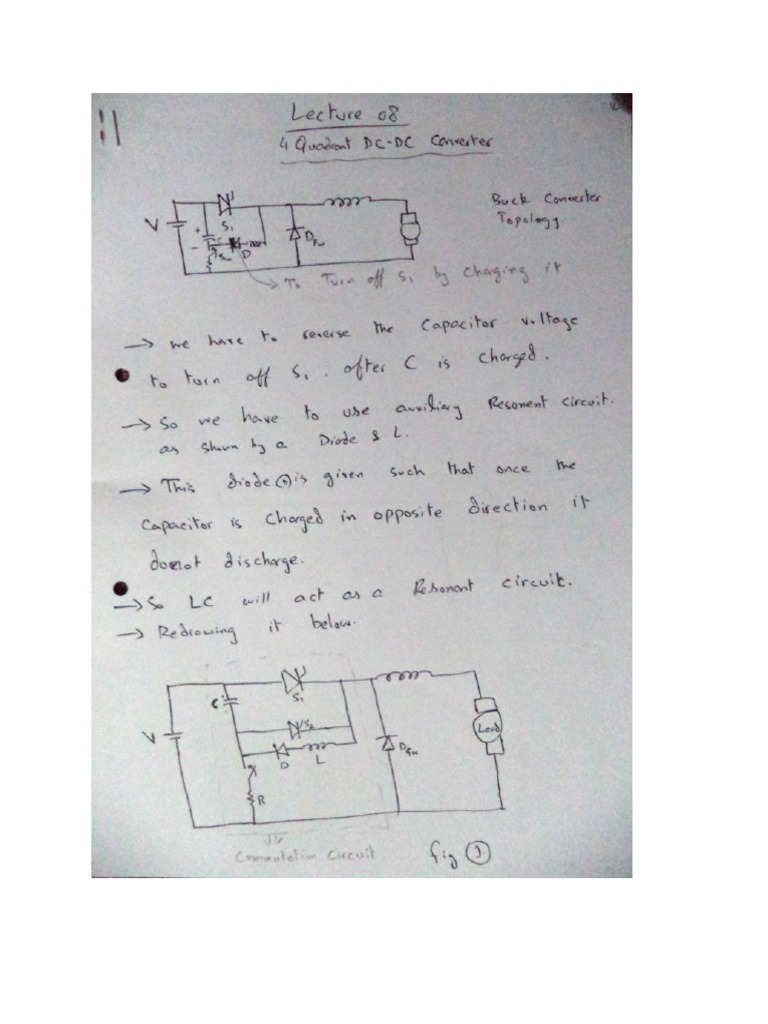 Lecture 08
4 Quadrant DC-DC Converter
Buck Converter
Topology
V
S1
+
-
C
Sw
D
Dfw
→ To Turn off S1 by charging it
→ we have to reverse the Capacitor voltage
to turn off S1. after C is charged.
→ So we have to use auxiliary Resonent circuit.
as shown by a Diode & L.
→ This diode (D) is given such that once the
Capacitor is charged in opposite direction it
doenot discharge.
→ So LC will act as a Resonant circuit.
→ Redrawing it below.
C
S1
V
S2
D
L
Dfw
Load
R
Commutation Circuit
fig 1